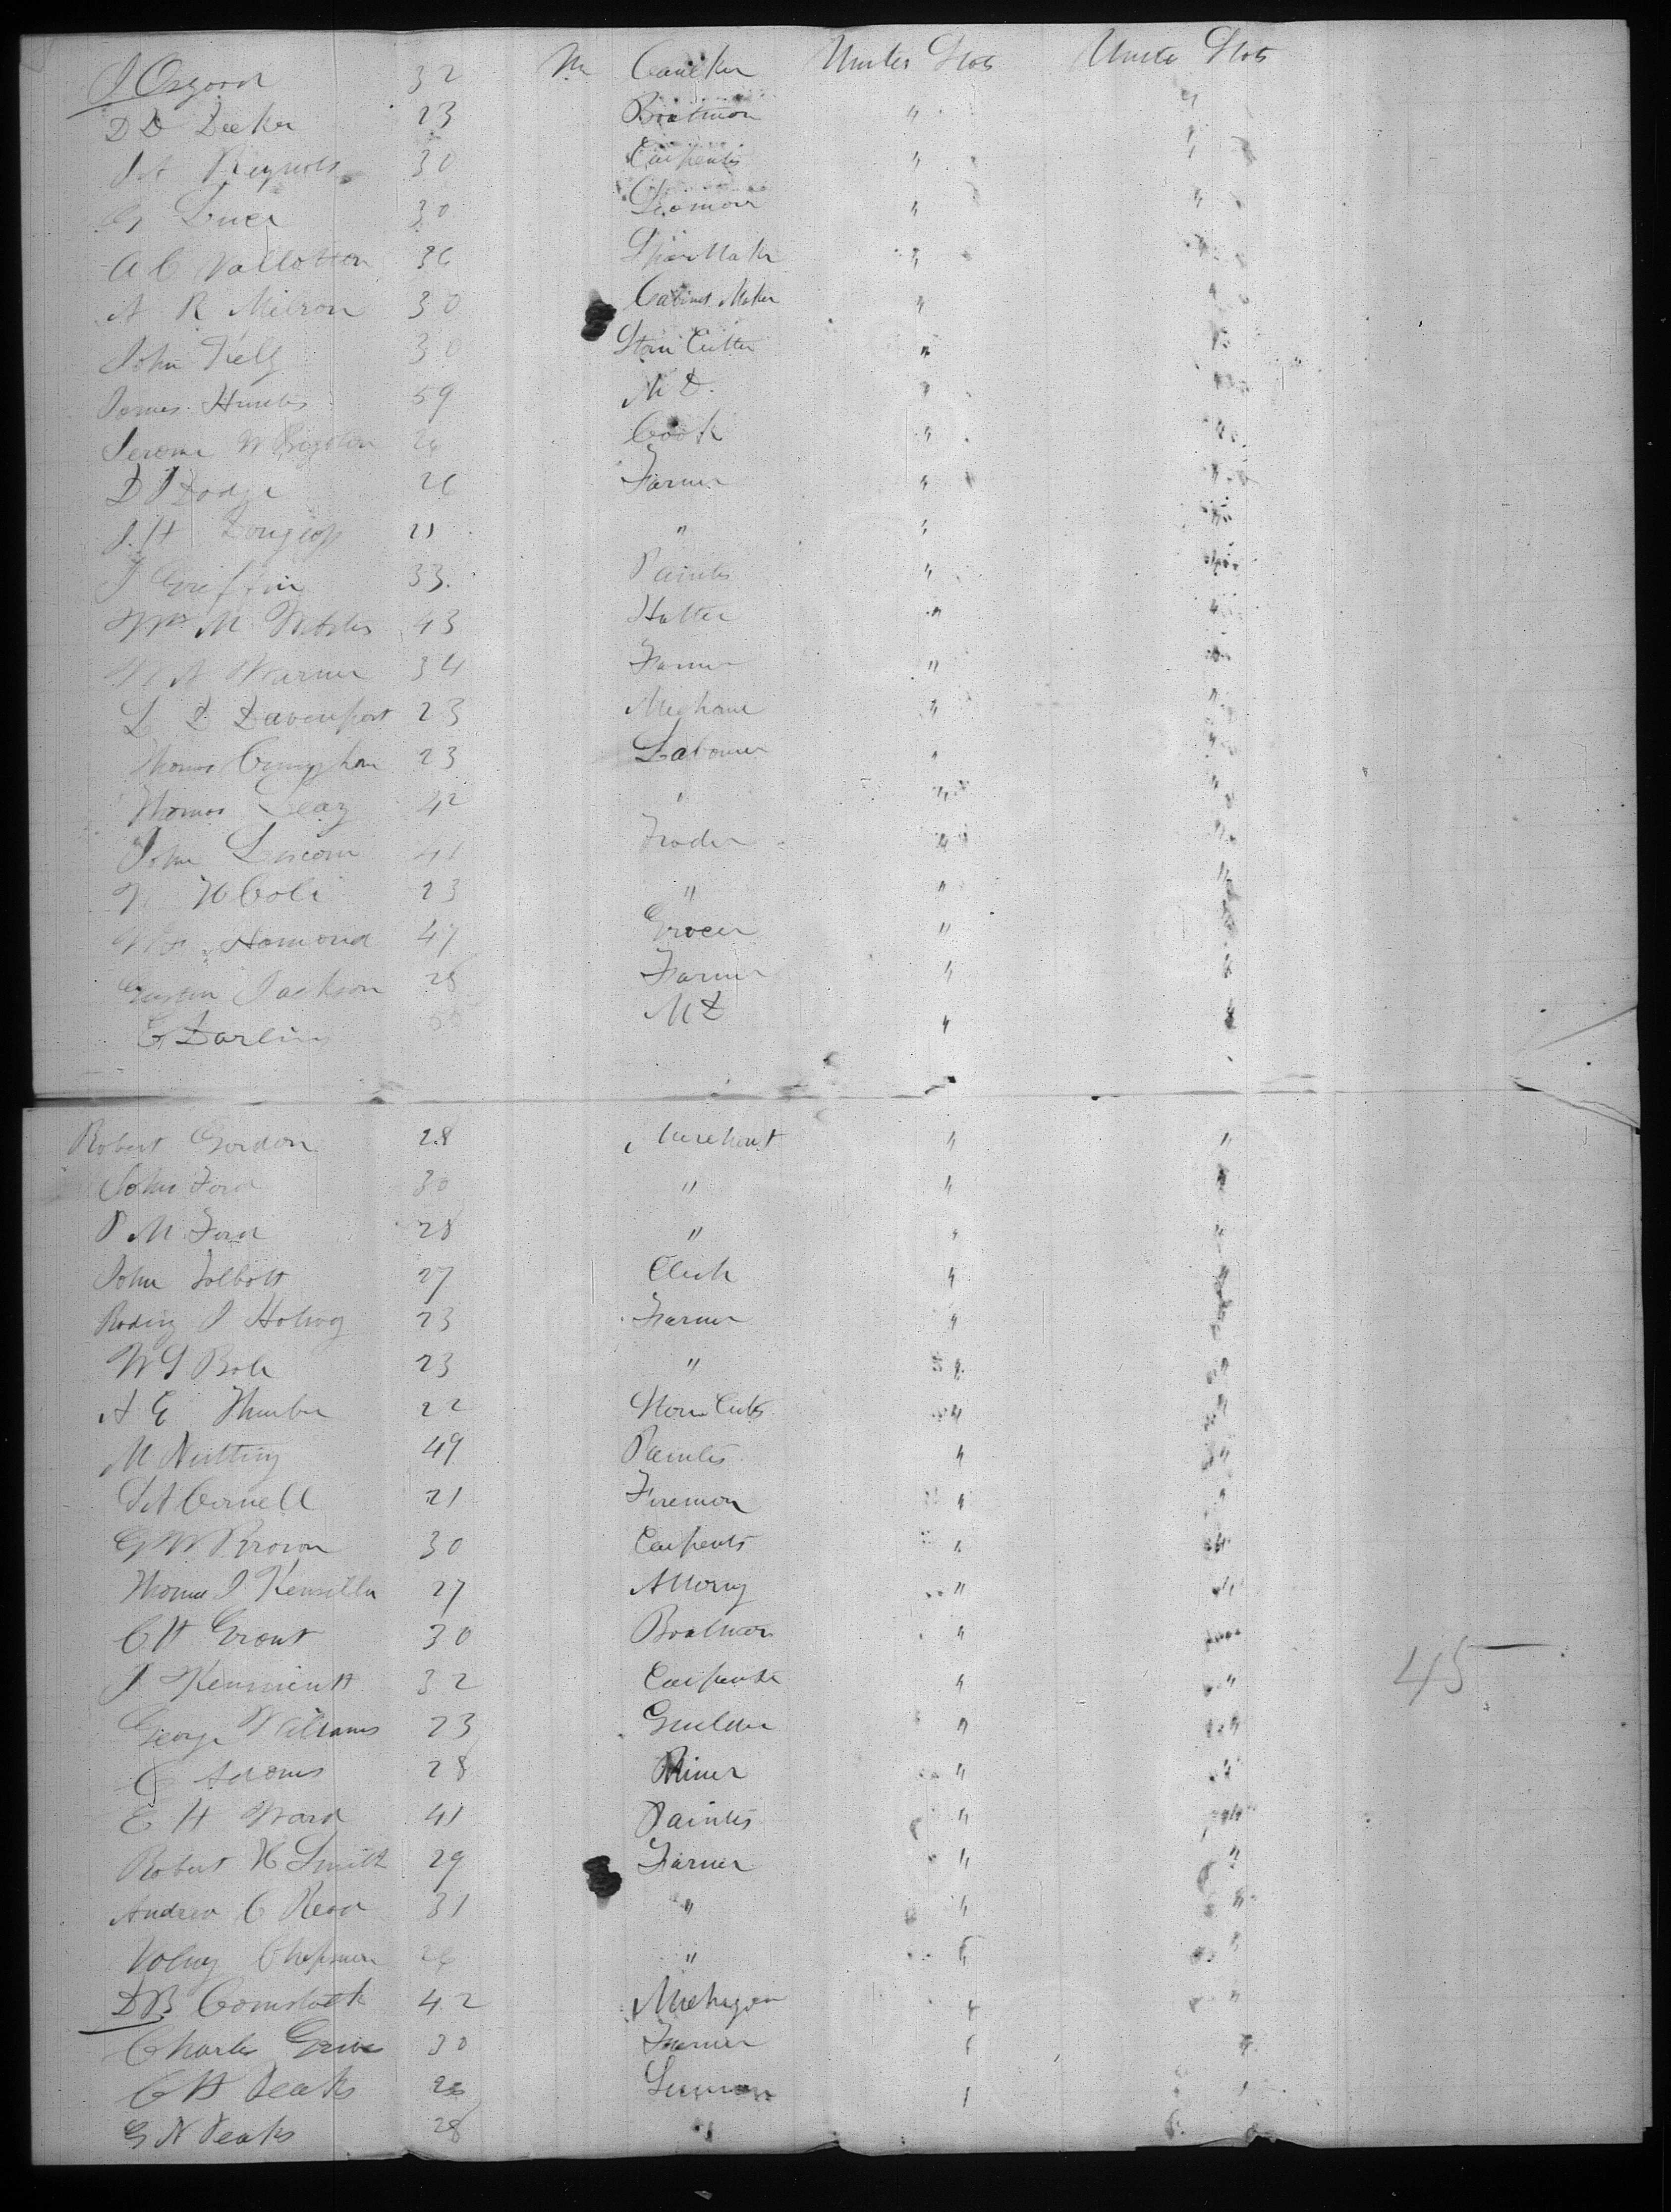 J Osgood 32 M Caulker Unite Stats Unite Stats
D D Decker 23 Boatman " "
J A Reynolds 30 Carpenter " "
G Luce 30 Seaman " "
A C Vallotton 36 Maker " "
A R Milron 30 Cabinet Maker " "
John Kelly 30 Stone Cutter " "
James Hunter 59 M D. " "
Jerome W 26 Cook " "
D J Dodge 26 Farmer " "
J. H 21 " " "
J Griffin 33. Painter " "
Wm M Webster 43 Hatter " "
W A Warner 34 Farmer " "
L D Davenport 23 Mechanic " "
Thomas 23 Labourer " "
Thomas Leary 42 " " "
John 41 Trader " "
W H Cole 23 " " "
Wm Hamond 47 Grocer " "
Jackson 28 Farmer " "
G Darling 50 M D " "
Robert Gordon 28 Merchant " "
John Ford 30 " " "
P M Ford 28 " " "
John Tolbott 27 Clerk " "
J 23 Farmer " "
W S Bole 23 " " "
A E Thurber 22 Stone Cutter " "
M Nutting 49 Painter " "
S A Cornell 21 Fireman " "
G W Brown 30 Carpenter " "
Thomas J 27 Attorny " "
C H Grant 30 Boatman " "
J Kennicutt 32 Carpenter " " 45
George Williams 23 " "
C Adams 28 Miner " "
E H Ward 41 Painter " "
Robert H Smith 29 Farmer " "
Andrew C Read 31 " " "
Volney Chapman 26 " " "
D B Comstock 42 " "
Charles 30 Farmer " "
C H Peaks 26 " "
G N Peaks 28 "